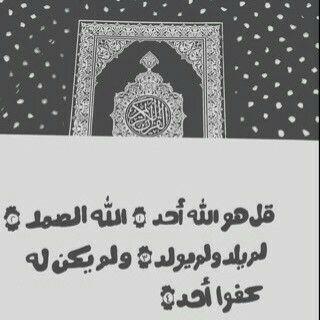 القرآن الكريم
قل هو الله أحد ۝ الله الصمد ۝
لم يلد ولم يولد ۝ ولم يكن له
كفوا أحد ۝